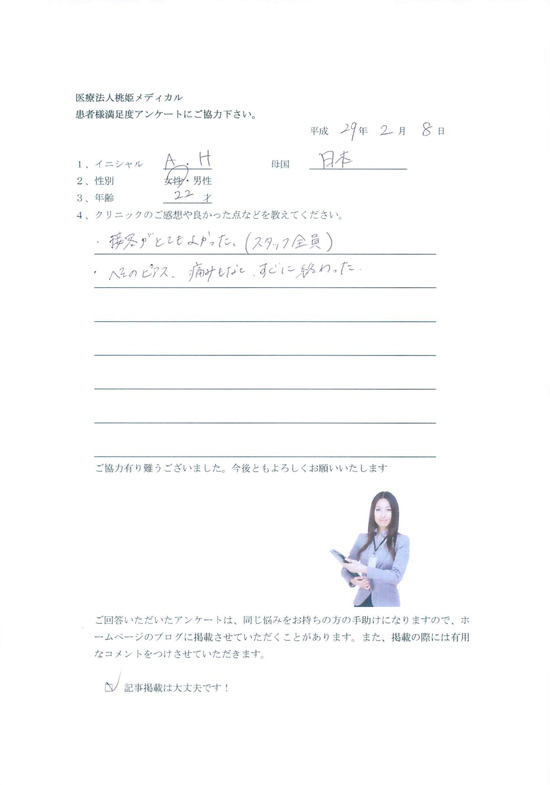 医療法人桃姫メディカル
患者様満足度アンケートにご協力下さい。
平成 29年 2月 8日
1、イニシャル A.H 母国 日本
2、性別 女性・男性
3、年齢 22才
4、クリニックのご感想や良かった点などを教えてください。
・接客がとてもよかった。(スタッフ全員)
・へそのピアス、痛みもなく、すぐに終わった.
ご協力有り難うございました。今後ともよろしくお願いいたします
ご回答いただいたアンケートは、同じ悩みをお持ちの方の手助けになりますので、ホ
ームページのブログに掲載させていただくことがあります。また、掲載の際には有用
なコメントをつけさせていただきます。
記事掲載は大丈夫です！